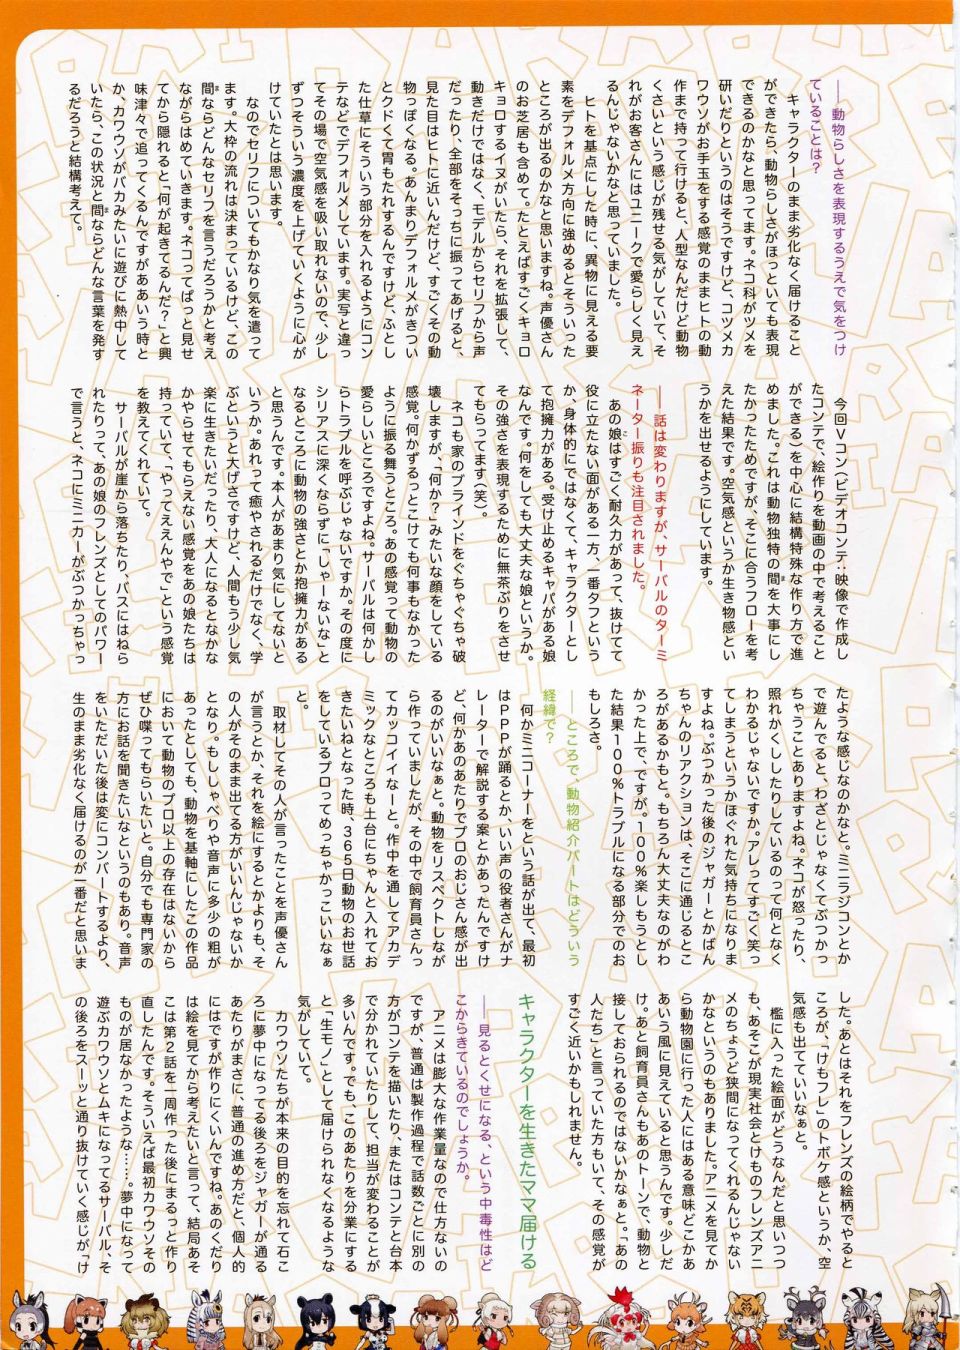 ――動物らしさを表現するうえで気をつけ
ていることは?
キャラクターのまま劣化なく届けること
ができたら、動物らしさがほっといても表現
できるのかなと思ってます。ネコ科がツメを
研いだりというのはそうですけど、コツメカ
ワウソがお手玉をする感覚のままヒトの動
作まで持って行けると、人型なんだけど動物
くさいという感じが残せる気がしていて、そ
れがお客さんにはユニークで愛らしく見え
るんじゃないかなと思っていました。
ヒトを基点にした時に、異物に見える要
素をデフォルメ方向に強めるとそういった
ところが出るのかなと思いますね。声優さん
のお芝居も含めて。たとえばすごくキョロ
キョロするイヌがいたら、それを拡張して、
動きだけではなく、モデルからセリフから声
だったり、全部をそっちに振ってあげると、
見た目はヒトに近いんだけど、すごくその動
物っぽくなる。あんまりデフォルメがきつい
とクドくて胃もたれするんですけど、ふとし
た仕草にそういう部分を入れるようにコン
テなどでデフォルメしています。実写と違っ
てその場で空気感を吸い取れないので、少し
ずつそういう濃度を上げていくように心が
けていたとは思います。
なのでセリフについてもかなり気を遣って
ます。大枠の流れは決まっているけど、この
間ならどんなセリフを言うだろうかと考え
ながらはめていきます。ネコってぱっと見せ
てから隠れると「何が起きてるんだ?」と興
味津々で追ってくるんですがああいう時と
か、カワウソがバカみたいに遊びに熱中して
いたら、この状況と間ならどんな言葉を発す
るだろうと結構考えて。
今回Vコン(ビデオコンテ:映像で作成し
たコンテで、絵作りを動画の中で考えること
ができる)を中心に結構特殊な作り方で進
めました。これは動物独特の間を大事にし
たかったためですが、そこに合うフローを考
えた結果です。空気感というか生き物感とい
うかを出せるようにしています。
――話は変わりますが、サーバルのターミ
ネーター振りも注目されました。
あの娘はすごく耐久力があって、抜けてて
役に立たない面がある一方、一番タフという
か、身体的にではなくて、キャラクターとし
て抱擁力がある。受け止めるキャパがある娘
なんです。何をしても大丈夫な娘というか。
その強さを表現するために無茶ぶりをさせ
てもらってます(笑)。
ネコも家のブラインドをぐちゃぐちゃ破
壊しますが、「何か?」みたいな顔をしている
感覚。何かずるっとこけても何事もなかった
ように振る舞うところ。あの感覚って動物の
愛らしいところですよね。サーバルは何かし
らトラブルを呼ぶじゃないですか。その度に
シリアスに深くならずに「しゃーないな」と
なるところに動物の強さとか抱擁力がある
と思うんです。本人があまり気にしてないと
いうか。あれって癒やされるだけでなく、学
ぶというと大げさですけど、人間もう少し気
楽に生きたいだったり、大人になるとなかな
かやらせてもらえない感覚をあの娘たちは
持っていて、「やってええんやで」という感覚
を教えてくれていて。
サーバルが崖から落ちたり、バスにはねら
れたりって、あの娘のフレンズとしてのパワー
で言うと、ネコにミニカーがぶつかっちゃっ
たような感じなのかなと。ミニラジコンとか
で遊んでると、わざとじゃなくてぶつかっ
ちゃうことありますよね。ネコが怒ったり、
照れかくししたりしているのって何となく
わかるじゃないですか。アレってすごく笑っ
てしまうというかほぐれた気持ちになりま
すよね。ぶつかった後のジャガーとかばん
ちゃんのリアクションは、そこに通じるとこ
ろがあるかもと。もちろん大丈夫なのがわ
かった上で、ですが。100%楽しもうとし
た結果100%トラブルになる部分でのお
もしろさ。
――ところで、動物紹介パートはどういう
経緯で?
何かミニコーナーをという話が出て、最初
はPPPが踊るとか、いい声の役者さんがナ
レーターで解説する案とかあったんですけ
ど、何かあのあたりでプロのおじさん感が出
るのがいいなぁと。動物をリスペクトしなが
ら作っていましたが、その中で飼育員さんっ
てカッコイイなーと。作中を通してアカデ
ミックなところも土台にちゃんと入れてお
きたいねとなった時、365日動物のお世話
をしているプロってめっちゃかっこいいなぁ
と。
取材してその人が言ったことを声優さん
が言うとか、それを絵にするとかよりも、そ
の人がそのまま出てる方がいいんじゃないか
となり。もししゃべりや音声に多少の粗が
あったとしても、動物を基軸にしたこの作品
において動物のプロ以上の存在はないから
ぜひ喋ってもらいたいと。自分でも専門家の
方にお話を聞きたいなというのもあり。音声
をいただいた後は変にコンバートするより、
生のまま劣化なく届けるのが一番だと思いま
した。あとはそれをフレンズの絵柄でやると
ころが、「けもフレ」のトボケ感というか、空
気感も出てていいなぁと。
檻に入った絵面がどうなんだと思いつつ
も、あそこが現実社会とけものフレンズアニ
メのちょうど狭間になってくれるんじゃない
かなというのもありました。アニメを見てか
ら動物園に行った人にはある意味どこかあ
あいう風に見えていると思うんです。少しだ
け。あと飼育員さんもあのトーンで、動物と
接しておられるのではないかなぁと。「あの
人たち」と言っていた方もいて、その感覚が
すごく近いかもしれません。
キャラクターを生きたママ届ける
――見るとくせになる、という中毒性はど
こからきているのでしょうか。
アニメは膨大な作業量なので仕方ないの
ですが、普通は製作過程で話数ごとに別の
方がコンテを描いたり、またはコンテと台本
で分かれていたりして、担当が変わることが
多いんです。でも、このあたりを分業にする
と「生モノ」として届けられなくなるような
気がしていて。
カワウソたちが本来の目的を忘れて石こ
ろに夢中になってる後ろをジャガーが通る
あたりがまさに、普通の進め方だと、個人的
にはですが作りにくいんですね。あのくだり
は絵を見てから考えたいと言って、結局あそ
こは第2話を一周作った後にまるっと作り
直したんです。そういえば最初カワウソその
ものが居なかったような……。夢中になって
遊ぶカワウソとムキになってるサーバル、そ
の後ろをスーッと通り抜けていく感じが「け